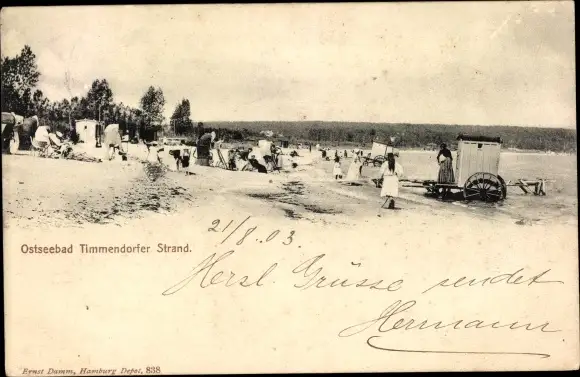 21/8.03.
Ostseebad Timmendorfer Strand.
Herzl. Grüsse sendet
Hermann
Ernst Damm, Hamburg Depot, 838